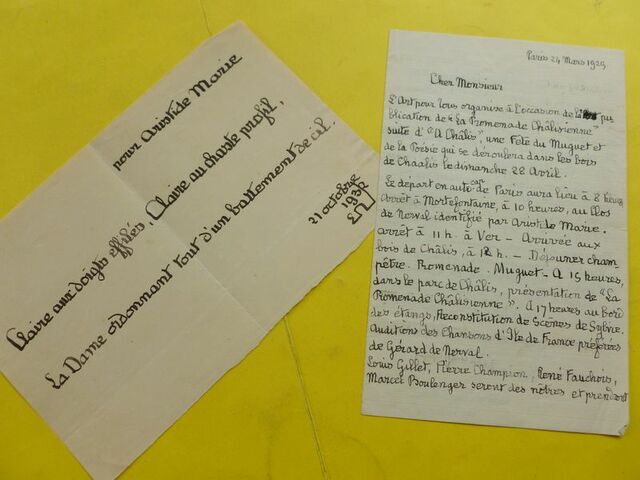 pour Aristide Marie
Claire aux doigts effilés, Claire au chaste profil,
La Dame ordonnant tout d'un battement de cil.
21 octobre
1932
Paris 24 Mars 1929
Cher Monsieur
L'Art pour Tous organise à l'occasion de la pu
blication de "La Promenade Châlisienne"
suite d'"A Châlis", une Fête du Muguet et
de la Poésie qui se déroulera dans les bois
de Chaalis le dimanche 28 Avril.
Le départ en auto car de Paris aura lieu à 8 heures
Arrêt à Mortefontaine, à 10 heures, au Clos
de Nerval identifié par Aristide Marie.
arrêt à 11 h. à Ver - Arrivée aux
bois de Châlis, à 12 h. - Déjeuner cham-
pêtre. Promenade. Muguet - A 15 heures,
dans le parc de Châlis, présentation de "La
Promenade Châlisienne". A 17 heures au Bord
des étangs, Reconstitution de Scènes de Sylvie.
Auditions des Chansons d'Ile de France préférées
de Gérard de Nerval.
Louis Gillet, Pierre Champion, René Fauchois,
Marcel Boulenger seront des nôtres et prendront